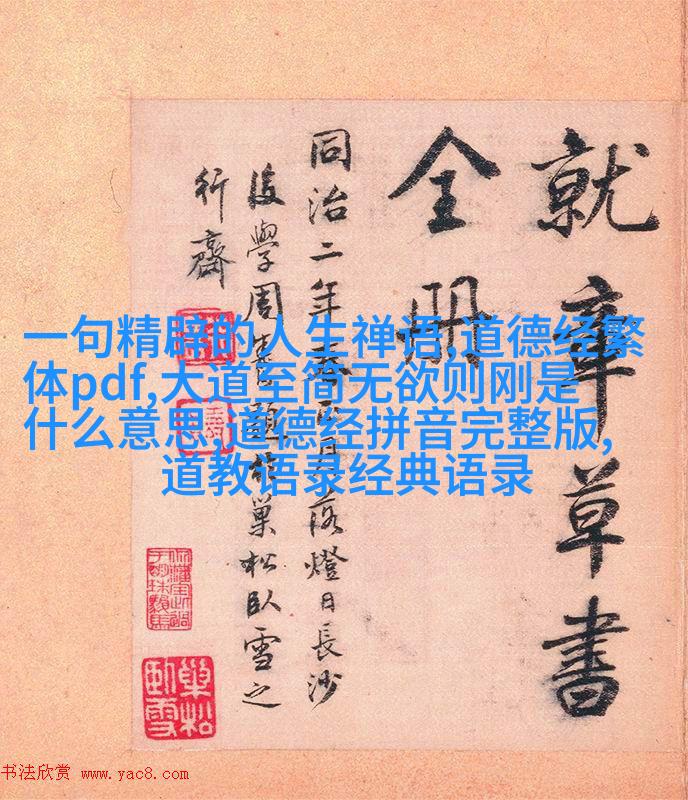 一句精辟的人生禅语,道德经繁
体pdf,大道至简无欲则刚是
什么意思,道德经拼音完整版,
道教语录经典语录
就章草書
全冊
同治二年正月落燈日長沙
後學周巢松臥雪之
行齋
巢松臥雪
书法欣赏 www.yac8.com